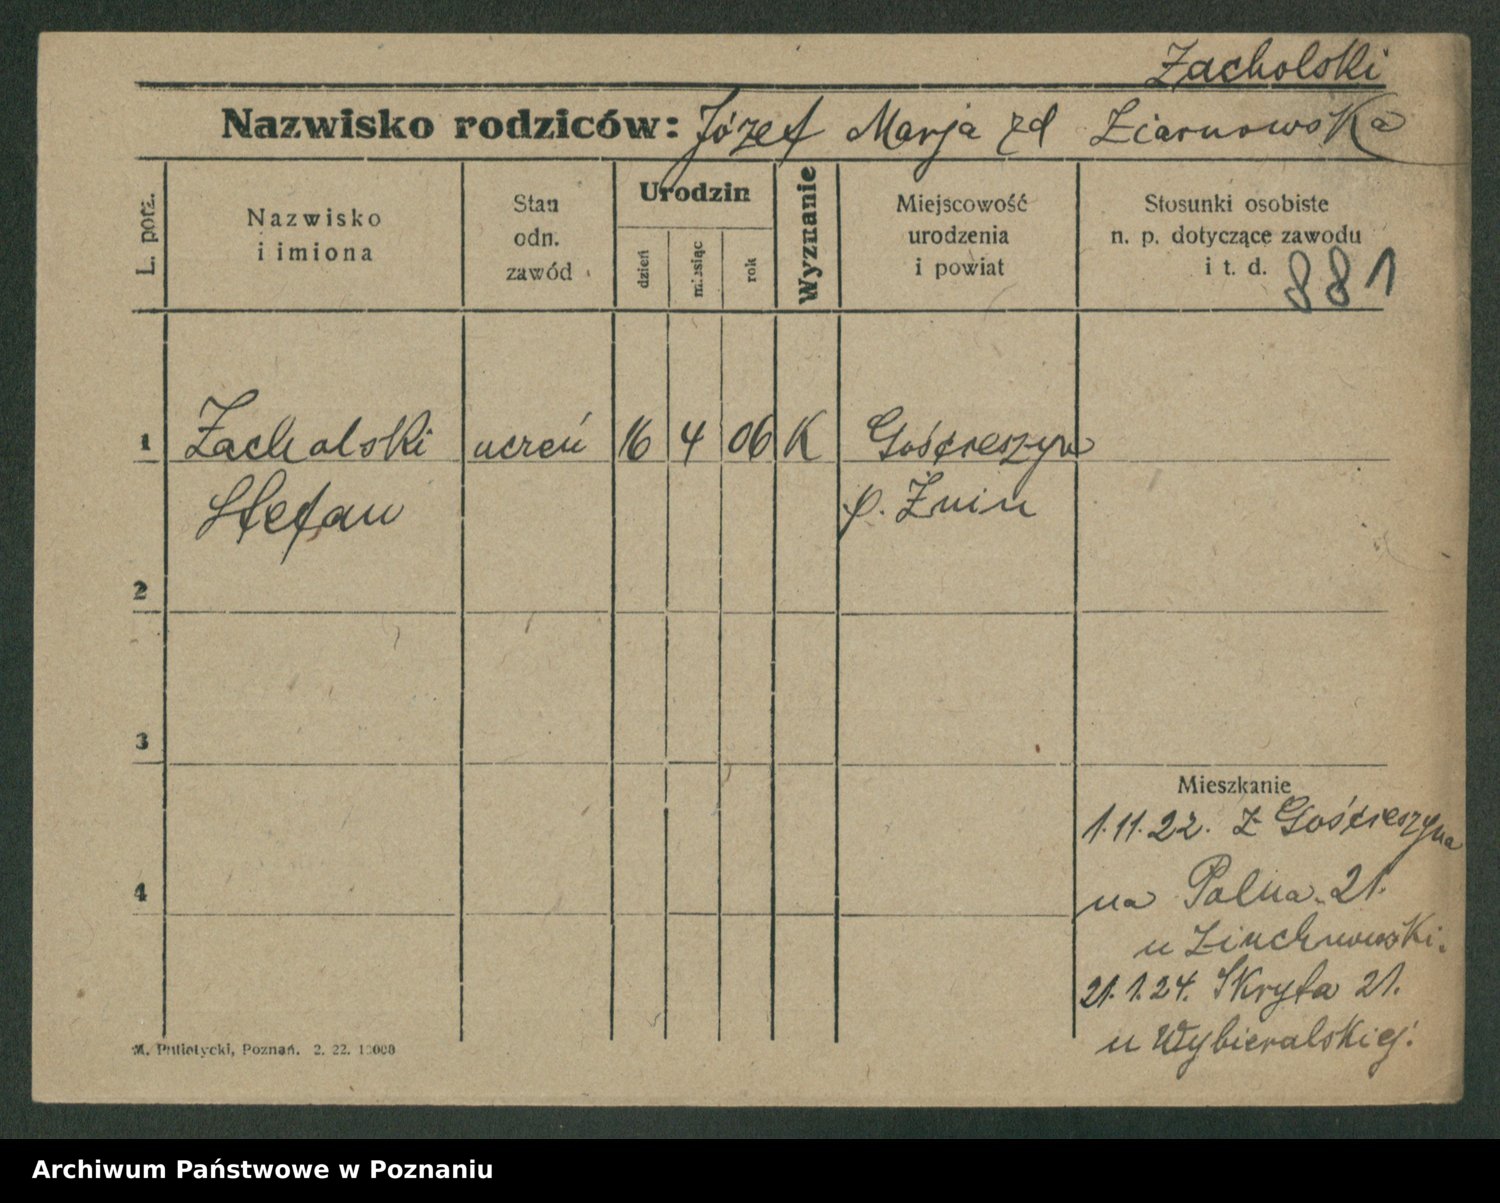 Zacholski
Nazwisko rodziców: Józef Marja zd Ziarnowska
L. porz.
Nazwisko
i imiona
Stan
odn.
zawód
Urodzin
dzień
miesiąc
rok
Wyznanie
Miejscowość
urodzenia
i powiat
Stosunki osobiste
n. p. dotyczące zawodu
i t. d.
881
1 Zacholski uczeń 16 4 06 K Gościeszyn
Stefan p. Żnin
2
3
Mieszkanie
1.11.22. z Gościeszyna
4
na Polna 21.
u
21.1.24. Skryta 21.
u Wybieralskiej.
M. Putiatycki, Poznań. 2. 22. 10000
Archiwum Państwowe w Poznaniu